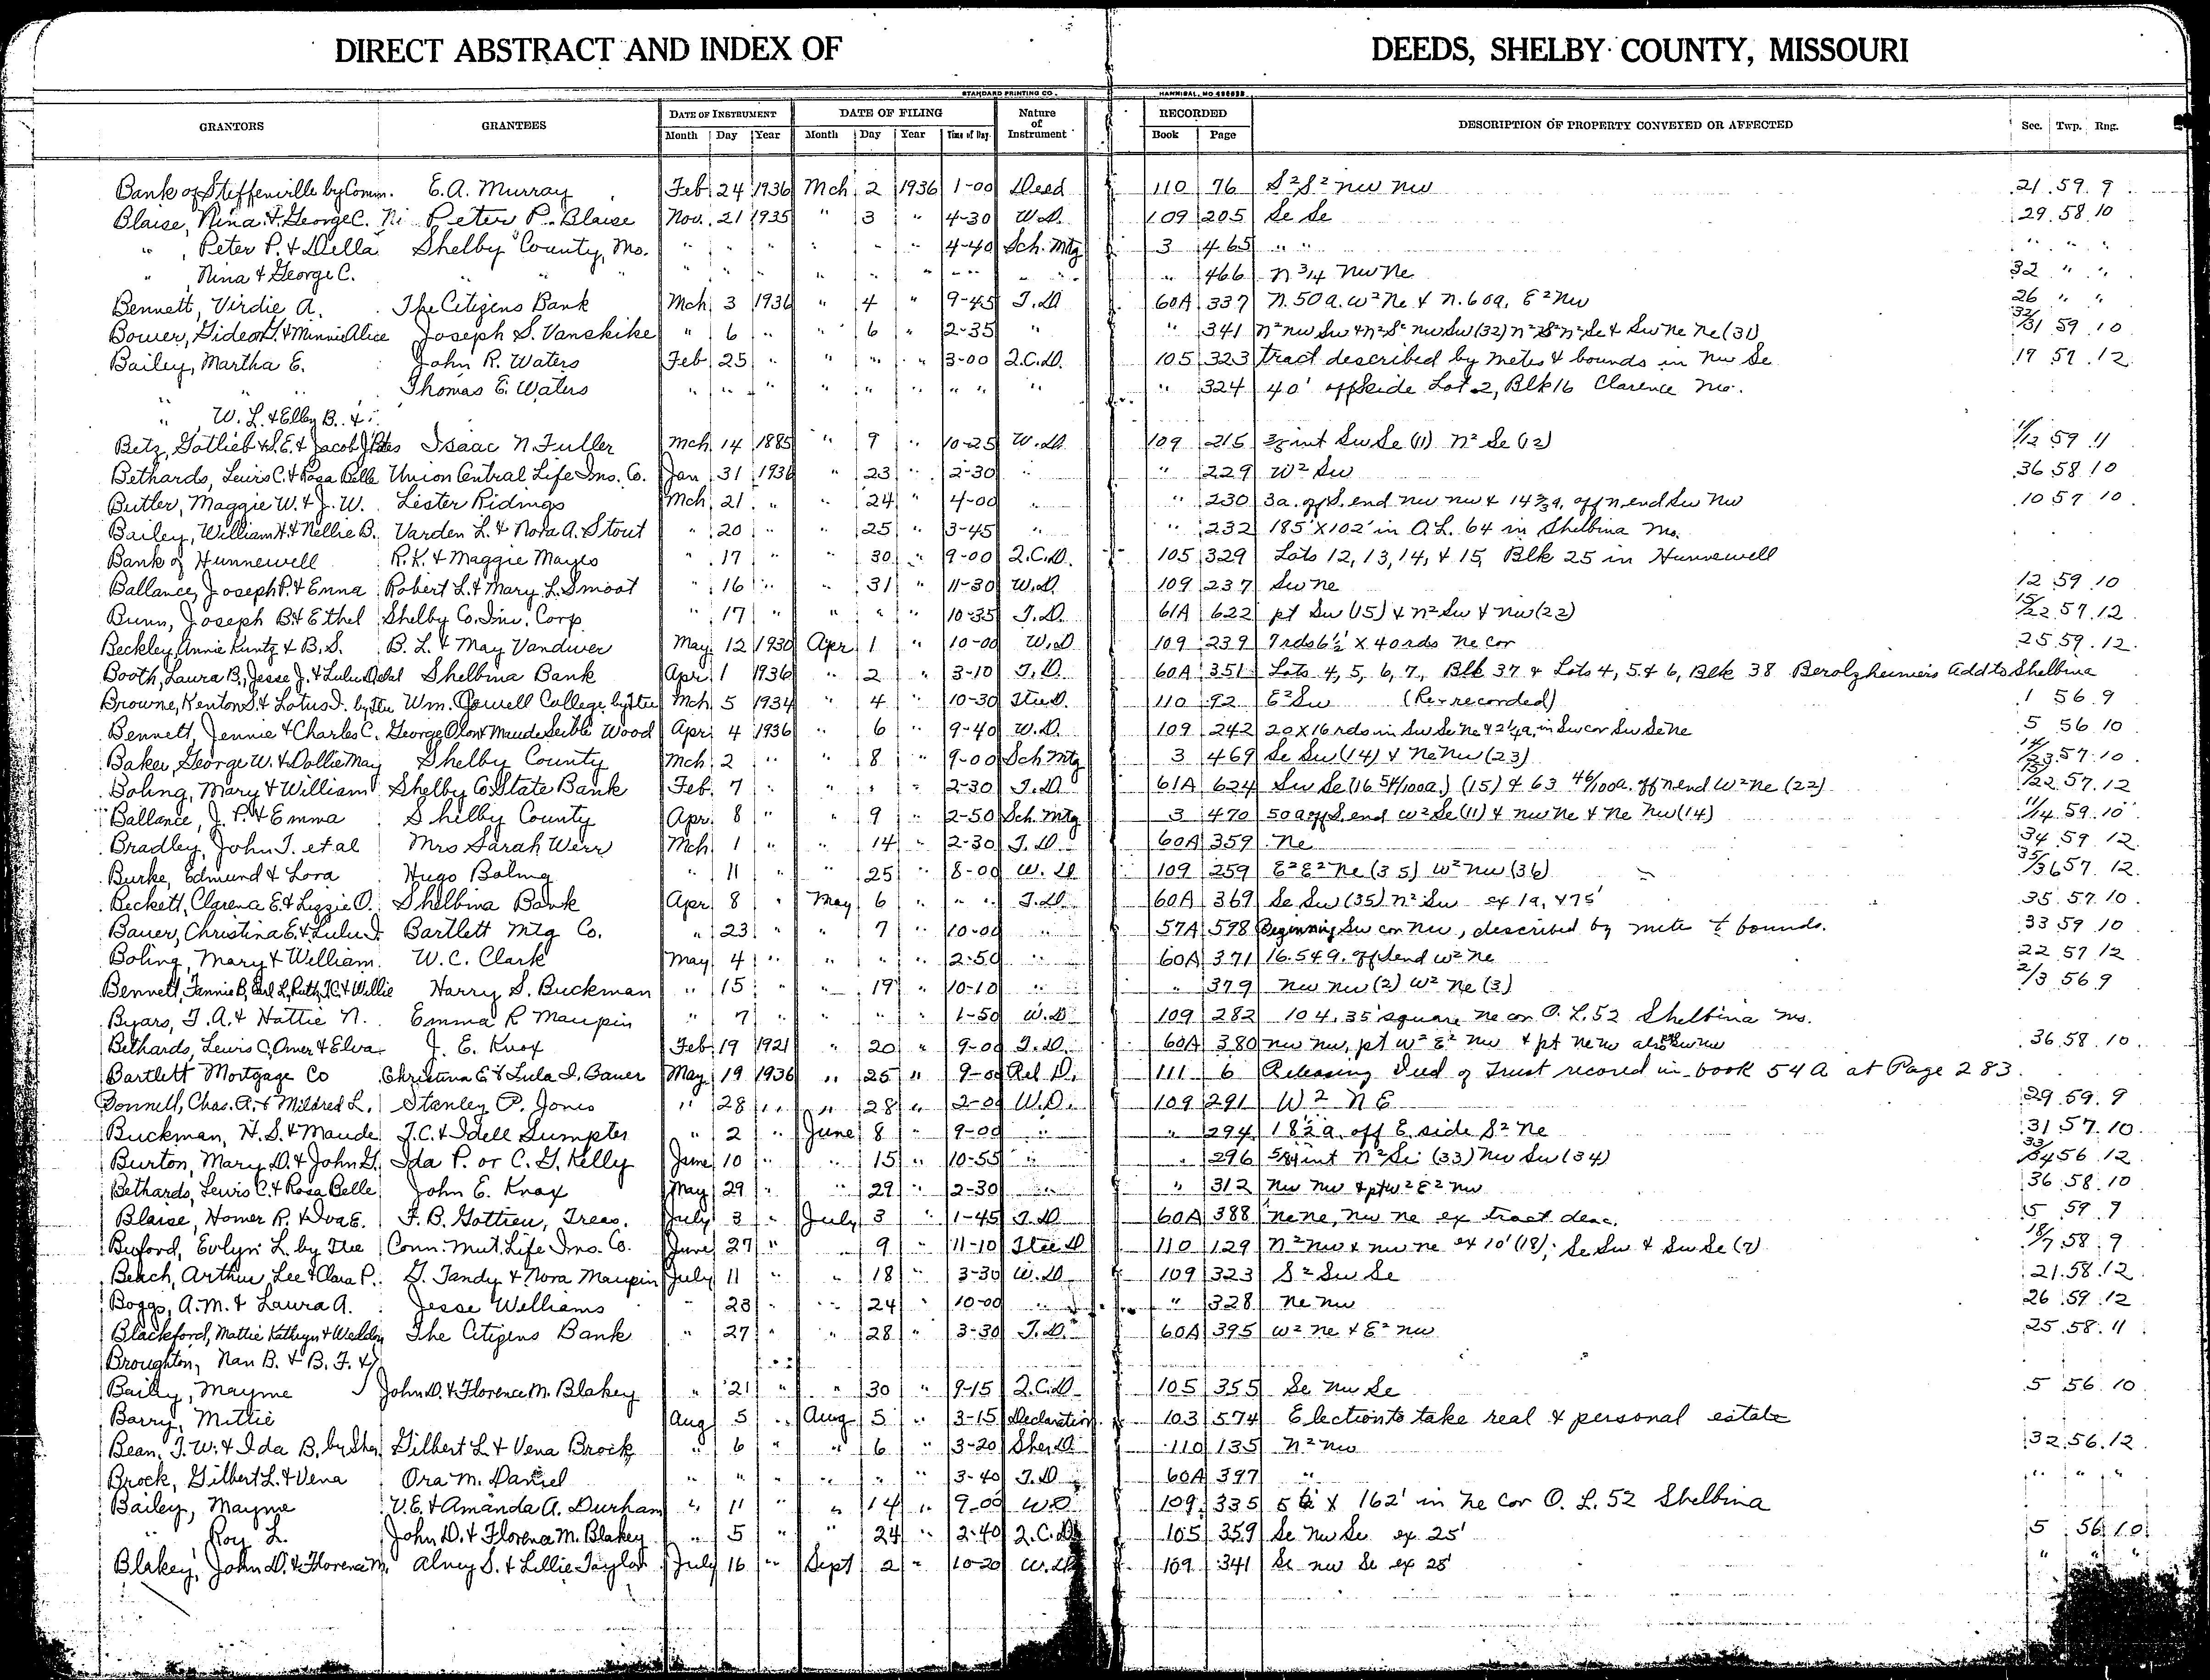 DIRECT ABSTRACT AND INDEX OF DEEDS, SHELBY COUNTY, MISSOURI
STANDARD PRINTING CO. HANNIBAL, MO
GRANTORS GRANTEES DATE OF INSTRUMENT DATE OF FILING Nature of Instrument RECORDED DESCRIPTION OF PROPERTY CONVEYED OR AFFECTED Sec. Twp. Rng.
Month Day Year Month Day Year Time of Day Book Page
Bank of Steffenville by Comm. E.A. Murray Feb 24 1936 Mch 2 1936 1-00 Deed 110 76 S² S² nw nw 21 59 9
Blaise, Nina & George C. Ni Peter P. Blaise Nov. 21 1935 " 3 " 4-30 W.D. 109 205 Se Se 29 58 10
" , Peter P. & Della Shelby County, Mo. " " " " " " 4-40 Sch. Mtg 3 465 " " " " "
" , Nina & George C. " " " " " " " " " " " 466 N 3/4 Nw Ne 32 " "
Bennett, Virdie A. The Citizens Bank Mch 3 1936 " 4 " 9-45 T.D. 60A 337 N. 50 a. W² Ne & N. 60 a. E² Nw 26 " "
Bower, Gideon G. & Minnie Alice Joseph S. Vanskike " 6 " " 6 " 2-35 " " 341 N² nw Sw & N² S² nw Sw (32) N² S² N² Se & Sw Ne Ne (31) 32/31 59 10
Bailey, Martha E. John R. Waters Feb 25 " " " " 3-00 Q.C.D. 105 323 tract described by metes & bounds in Nw Se 19 57 12
" " Thomas E. Waters " " " " " " " " " " 324 40' off side Lot 2, Blk 16 Clarence Mo.
" , W. L. & Elley B. &
Betz, Gotlieb & S.E. & Jacob J. Isaac N. Fuller Mch 14 1885 " 9 " 10-25 W.D. 109 215 int Sw Se (11) N² Se (12) 11/12 59 11
Bethards, Lewis C. & Rosa Belle Union Central Life Ins. Co. Jan 31 1936 " 23 " 2-30 " " 229 W² Sw 36 58 10
Butler, Maggie W. & J. W. Lester Ridings Mch 21 " " 24 " 4-00 " " 230 3a. off S. end nw nw & 14 a. off n. end Sw Nw 10 57 10
Bailey, William H. & Nellie B. Varden L. & Nora A. Stout " 20 " " 25 " 3-45 " " 232 185' X 102' in O.L. 64 in Shelbina Mo.
Bank of Hunnewell R.K. & Maggie Mayes " 17 " " 30 " 9-00 Q.C.D. 105 329 Lots 12, 13, 14, & 15, Blk 25 in Hunnewell
Ballance, Joseph P. & Emma Robert L. & Mary L. Smoot " 16 " " 31 " 11-30 W.D. 109 237 Sw ne 12 59 10
Bunn, Joseph B. & Ethel Shelby Co. Inv. Corp. " 17 " " " " 10-35 T.D. 61A 622 pt Sw (15) & n² Sw & nw (22) 15/22 57 12
Beckley, Annie Kuntz & B.S. B. L. & May Vandiver May 12 1930 Apr 1 " 10-00 W.D 109 239 7 rds 6½' X 40 rds Ne cor 25 59 12
Booth, Laura B., Jesse J. & Lulu Odel Shelbina Bank Apr 1 1936 " 2 " 3-10 T.D. 60A 351 Lots 4, 5, 6, 7, Blk 37 & Lots 4, 5 & 6, Blk 38 Berolzheimers Add to Shelbina
Browne, Kenton S. & Lotus I. by Stee Wm. Jewell College by Stee Mch 5 1934 " 4 " 10-30 Stee D. 110 92 E² Sw (Re-recorded) 1 56 9
Bennett, Jennie & Charles C. George Olon & Maude Seible Wood Apr 4 1936 " 6 " 9-40 W.D. 109 242 20 X 16 rds in Sw Se Ne & 2¼ a. in Sw cor Sw Se Ne 5 56 10
Baker, George W. & Dollie May Shelby County Mch 2 " " 8 " 9-00 Sch Mtg 3 469 Se Sw (14) & Ne Nw (23) 14/23 57 10
Boling, Mary & William Shelby Co. State Bank Feb 7 " " " 2-30 T.D. 61A 624 Sw Se (16 54/100a) (15) & 63 46/100a. off N end W² Ne (22) 15/22 57 12
Ballance, J. P. & Emma Shelby County Apr 8 " " 9 " 2-50 Sch. Mtg 3 470 50 a off S. end W² Se (11) & Nw Ne & Ne Nw (14) 11/14 59 10
Bradley, John T. et al Mrs Sarah Weir Mch 1 " " 14 " 2-30 T.D. 60A 359 Ne 34 59 12
Burke, Edmund & Lora Hugo Boling " 11 " " 25 " 8-00 W. D 109 259 E² E² Ne (35) W² Nw (36) 35/36 57 12
Beckett, Clarena E. & Lizzie O. Shelbina Bank Apr 8 " May 6 " " " T.D. 60A 369 Se Sw (35) N² Sw ex 1a, & 75' 35 57 10
Bauer, Christina E. & Lulu I. Bartlett Mtg Co. " 23 " " 7 " 10-00 " 57A 598 Beginning Sw cor Nw, described by mete & bounds. 33 59 10
Boling, Mary & William W. C. Clark May 4 " " " " 2-50 " 60A 371 16.54 a. off S end W² Ne 22 57 12
Bennett, Fannie B, Earl L, Ruth, J.C. & Willie Harry S. Buckman " 15 " " 19 " 10-10 " " 379 Nw Nw (2) W² Ne (3) 2/3 56 9
Byars, T. A. & Hattie N. Emma R Maupin " 7 " " " " 1-50 W.D 109 282 104.35 square ne cor O. L. 52 Shelbina Mo.
Bethards, Lewis C, Omer & Elva J. E. Knox Feb 19 1921 " 20 " 9-00 T.D. 60A 380 nw nw, pt w² E² nw & pt ne nw also 36 58 10
Bartlett Mortgage Co Christina E. & Lula I. Bauer May 19 1936 " 25 " 9-00 Rel D. 111 6 Releasing Deed of Trust recored in book 54A at Page 283.
Bonnell, Chas. A. & Mildred L. Stanley P. Jones " 28 " " 28 " 2-00 W.D. 109 291 W² N E 29 59 9
Buckman, H. S. & Maude T.C. & Idell Sumpter " 2 " June 8 " 9-00 " " 294 18½ a. off E. side S² Ne 31 57 10
Burton, Mary D. & John G. Ida P. or C. G. Kelly June 10 " " 15 " 10-55 " " 296 int N² Se (33) Nw Sw (34) 33/34 56 12
Bethards, Lewis C. & Rosa Belle John E. Knox May 29 " " 29 " 2-30 " " 312 Nw Nw & pt w² E² nw 36 58 10
Blaise, Homer R. & Iva E. F. B. Gottien, Treas. July 3 " July 3 " 1-45 T.D 60A 388 ne ne, nw ne ex tract desc. 5 59 9
Buford, Evlyn L. by Stee Conn. Mut. Life Ins. Co. June 27 " " 9 " 11-10 Stee D 110 129 N² nw & nw ne ex 10' (18); Se Sw & Sw Se (7) 18/7 58 9
Beach, Arthur Lee & Clara P. G. Tandy & Nora Maupin July 11 " " 18 " 3-30 W.D 109 323 S² Sw Se 21 58 12
Boggs, A. M. & Laura A. Jesse Williams " 23 " " 24 " 10-00 " " 328 Ne nw 26 59 12
Blackford, Mattie Kathryn & Weldon The Citizens Bank " 27 " " 28 " 3-30 T.D. 60A 395 W² Ne & E² nw 25 58 11
Broughton, Nan B. & B. F. &
Bailey, Mayme John D. & Florence M. Blakey " 21 " " 30 " 9-15 Q.C.D 105 355 Se Nw Se 5 56 10
Barry, Mittie Aug 5 " Aug 5 " 3-15 Declaration 103 574 Election to take real & personal estate
Bean, T. W. & Ida B. by Sher Gilbert L. & Vena Brock " 6 " " 6 " 3-20 Sher D. 110 135 N² nw 32 56 12
Brock, Gilbert L. & Vena Ora M. Daniel " " " " " " 3-40 T.D 60A 397 " " " "
Bailey, Mayme V.E. & Amanda A. Durham " 11 " " 14 " 9-00 W.D 109 335 X 162' in ne cor O. L. 52 Shelbina
" , Roy L. John D. & Florence M. Blakey " 5 " " 24 " 2-40 Q.C.D 105 359 Se Nw Se ex 25' 5 56 10
Blakey, John D. & Florence M. Alney S. & Lillie Taylor July 16 " Sept 2 " 10-20 W.D 109 341 Se nw Se ex 25' " " "